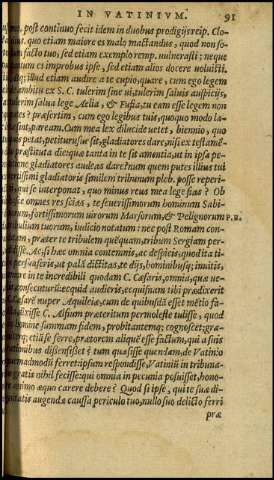 IN VATINIVM. 91
post continuo fecit idem in duobus prodigijs reip. Clo-
quo etiam maiore es malo mactandus, quod non so-
facto tuo, sed etiam exemplo remp. vulnerasti: neque
es improbus ipse, sed etiam alios docere voluisti.
illud etiam audire a te cupio, quare, cum ego legem
de ambitu ex S. C. tulerim sine ui, tulerim saluis auspicijs,
tulerim salua lege Aelia, & Fusia, tu eam esse legem non
præsertim, cum ego legibus tuis, quoquo modo la-
pareã. Cum mea lex dilucide uetet, biennio, quo
petat, petiturusue sit, gladiatores dare, nisi ex testamẽ-
die: quæ tanta in te sit amentia, ut in ipsa pe-
gladiatores audeas dare? num quem putes illius tui
gladiatoris similem tribunum pleb. posse reperi-
qui se interponat, quo minus reus mea lege fias? Ob
omnes res sciãs, te seuerissimorum hominum Sabi-
fortissimorum uirorum Marsorum, & Pelignorum P.R.
tuorum, iudicio notatum: nec post Romam con-
præter te tribulem quẽquam, tribum Sergiam per-
Ac, si hæc omnia contemnis, ac despicis, quod ita ti-
ut palã dictitas, te dijs, hominibusq; inuitis,
in te incredibili quodam C. Cæsaris, omnia, quæ ue-
consecuturũ: ecquid audieris, ecquisnam tibi præ dixerit
Cæsarẽ nuper Aquileiæ, cum de quibusdã esset mẽtio fa-
dixisse C. Alfium præteritum permoleste tulisse, quod
homine summam fidem, probitatemq; cognosset: gra-
etiã se ferre, prætorem aliquẽ esse factum, qui a suis
rationibus dissensisset: tum quæsisse quendam, de Vatinio
modũ ferret: ipsum respondisse, Vatiniũ in tribuna-
gratis nihil fecisse: qui omnia in pecunia posuisset, hono-
animo æquo carere debere? Quod si ipse, qui te suæ di-
gnitatis augendæ caussa periculo tuo, nullo suo delicto ferri
præ